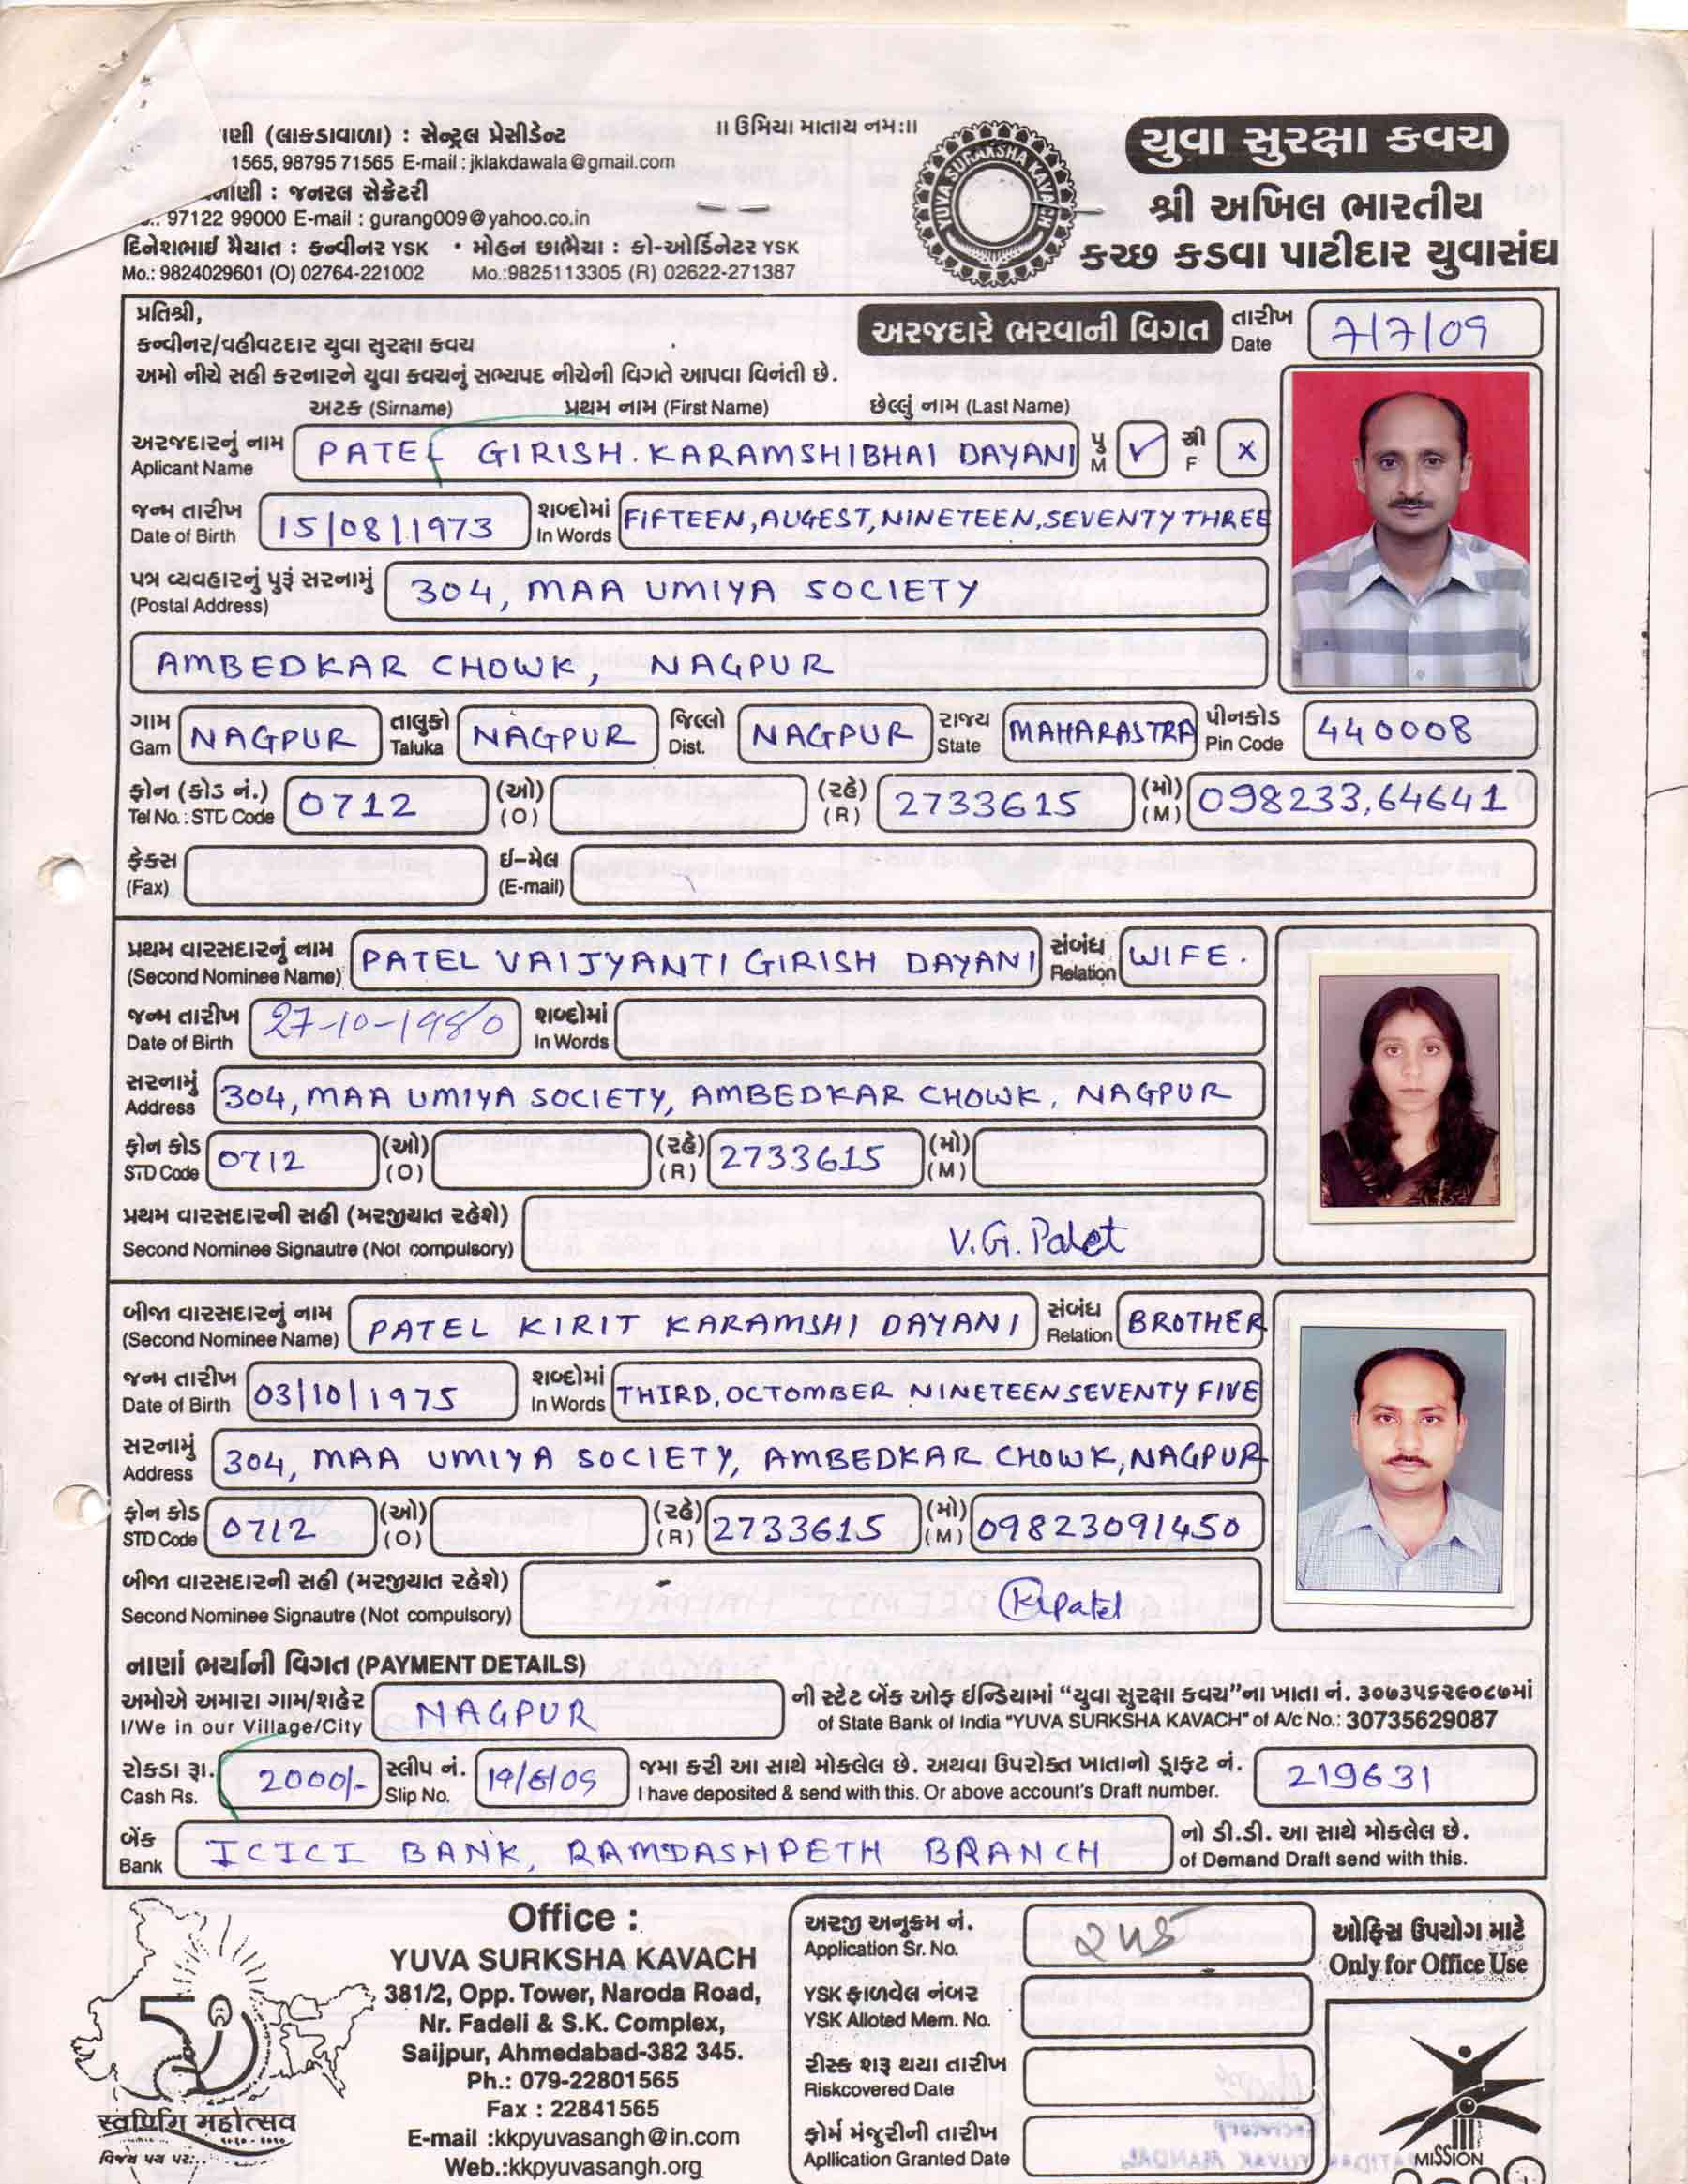 ાણી (લાકડાવાળા) : સેન્ટ્રલ પ્રેસીડેન્ટ
1565, 98795 71565 E-mail : jklakdawala@gmail.com
: જનરલ સેક્રેટરી
97122 99000 E-mail : gurang009@yahoo.co.in
દિનેશભાઈ મૈયાત : કન્વીનર YSK • મોહન છાભૈયા : કો-ઓર્ડિનેટર YSK
Mo.: 9824029601 (O) 02764-221002 Mo.:9825113305 (R) 02622-271387
॥ ઉમિયા માતાય નમઃ॥
YUVA SURAKSHA KAVACH
યુવા સુરક્ષા કવચ
શ્રી અખિલ ભારતીય
કચ્છ કડવા પાટીદાર યુવાસંઘ
પ્રતિશ્રી,
કન્વીનર/વહીવટદાર યુવા સુરક્ષા કવચ
અમો નીચે સહી કરનારને યુવા કવચનું સભ્યપદ નીચેની વિગતે આપવા વિનંતી છે.
અરજદારે ભરવાની વિગત
તારીખ Date 7/7/09
અટક (Sirname) પ્રથમ નામ (First Name) છેલ્લું નામ (Last Name)
અરજદારનું નામ Aplicant Name PATEL GIRISH. KARAMSHIBHAI DAYANI પુ M ✓ સ્ત્રી F X
જન્મ તારીખ Date of Birth 15/08/1973 શબ્દોમાં In Words FIFTEEN, AUGEST, NINETEEN, SEVENTY THREE
પત્ર વ્યવહારનું પુરૂં સરનામું (Postal Address) 304, MAA UMIYA SOCIETY
AMBEDKAR CHOWK, NAGPUR
ગામ Gam NAGPUR તાલુકો Taluka NAGPUR જિલ્લો Dist. NAGPUR રાજ્ય State MAHARASTRA પીનકોડ Pin Code 440008
ફોન (કોડ નં.) Tel No. : STD Code 0712 (ઓ) (O) (રહે) (R) 2733615 (મો) (M) 098233,64641
ફેક્સ (Fax) ઈ-મેલ (E-mail)
પ્રથમ વારસદારનું નામ (Second Nominee Name) PATEL VAIJYANTI GIRISH DAYANI સંબંધ Relation WIFE.
જન્મ તારીખ Date of Birth 27-10-1980 શબ્દોમાં In Words
સરનામું Address 304, MAA UMIYA SOCIETY, AMBEDKAR CHOWK, NAGPUR
ફોન કોડ STD Code 0712 (ઓ) (O) (રહે) (R) 2733615 (મો) (M)
પ્રથમ વારસદારની સહી (મરજીયાત રહેશે)
Second Nominee Signautre (Not compulsory) V.G. Patel
બીજા વારસદારનું નામ (Second Nominee Name) PATEL KIRIT KARAMSHI DAYANI સંબંધ Relation BROTHER
જન્મ તારીખ Date of Birth 03/10/1975 શબ્દોમાં In Words THIRD, OCTOMBER NINETEEN SEVENTY FIVE
સરનામું Address 304, MAA UMIYA SOCIETY, AMBEDKAR CHOWK, NAGPUR
ફોન કોડ STD Code 0712 (ઓ) (O) (રહે) (R) 2733615 (મો) (M) 09823091450
બીજા વારસદારની સહી (મરજીયાત રહેશે)
Second Nominee Signautre (Not compulsory) Kkpatel
નાણાં ભર્યાની વિગત (PAYMENT DETAILS)
અમોએ અમારા ગામ/શહેર NAGPUR ની સ્ટેટ બેંક ઓફ ઈન્ડિયામાં “યુવા સુરક્ષા કવચ”ના ખાતા નં. ૩૦૭૩૫૬૨૯૦૮૭માં
I/We in our Village/City of State Bank of India "YUVA SURKSHA KAVACH" of A/c No.: 30735629087
રોકડા રૂા. Cash Rs. 2000/- સ્લીપ નં. Slip No. 19/6/09 જમા કરી આ સાથે મોકલેલ છે. અથવા ઉપરોક્ત ખાતાનો ડ્રાફ્ટ નં. 219631
I have deposited & send with this. Or above account's Draft number.
બેંક Bank ICICI BANK, RAMDASHPETH BRANCH નો ડી.ડી. આ સાથે મોકલેલ છે.
of Demand Draft send with this.
Office :
YUVA SURKSHA KAVACH
381/2, Opp. Tower, Naroda Road,
Nr. Fadeli & S.K. Complex,
Saijpur, Ahmedabad-382 345.
Ph.: 079-22801565
Fax : 22841565
E-mail :kkpyuvasangh@in.com
Web.:kkpyuvasangh.org
50
મહોત્સવ
વિજય પથ પર...
અરજી અનુક્રમ નં. Application Sr. No. ૨૫૬
YSK ફાળવેલ નંબર YSK Alloted Mem. No.
રીસ્ક શરૂ થયા તારીખ Riskcovered Date
ફોર્મ મંજુરીની તારીખ Apllication Granted Date
ઓફિસ ઉપયોગ માટે
Only for Office Use
MISSION